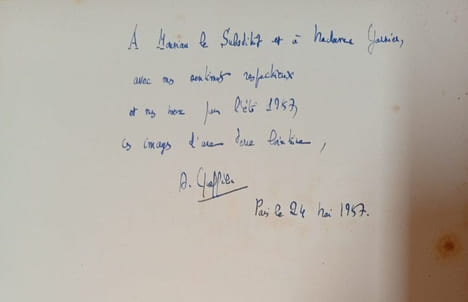 À Monsieur le Substitut et à Madame Garnier,
avec mes sentiments respectueux
et mes vœux pour l'été 1957,
ces images d'une terre lointaine,
Paris le 24 Mai 1957.